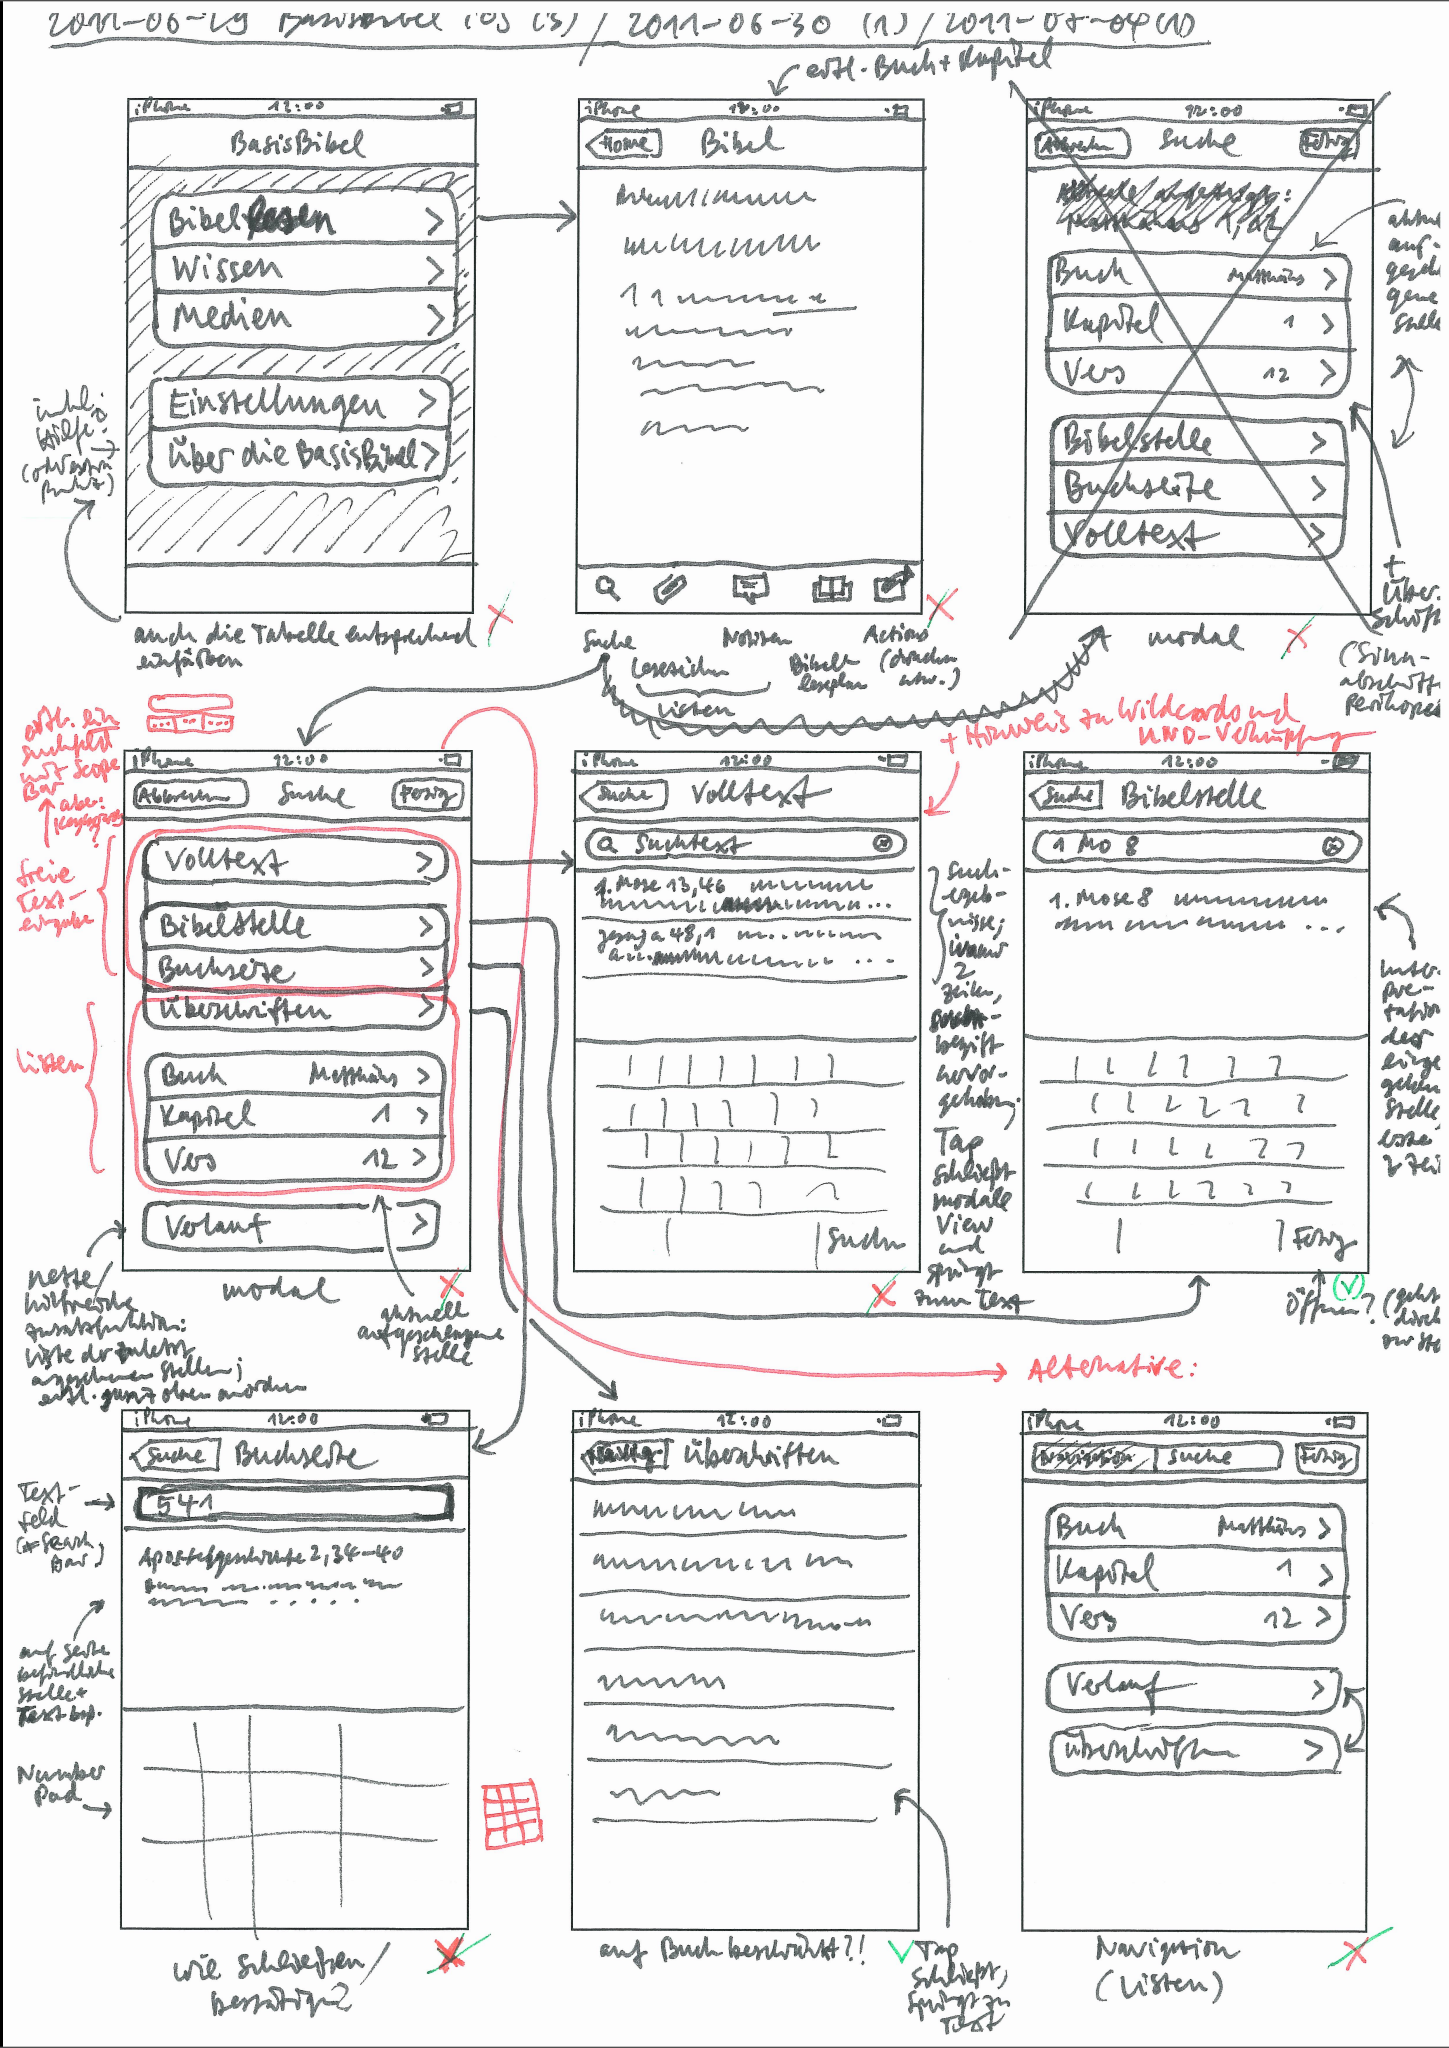 2011-06-29 BasisBibel iOS (3) / 2011-06-30 (1) / 2011-07-04 (1)
evtl. Buch + Kapitel
iPhone 12:00
BasisBibel
Bibel lesen
Wissen
Medien
Einstellungen
Über die BasisBibel
inkl.
Hilfe
auch die Tabelle entsprechend
einfärben
iPhone 12:00
Home Bibel
Suche
Lesezeichen
Notizen
Listen
Bibel-
leseplan
Actions
(drucken
usw.)
iPhone 12:00
Abbrechen Suche Fertig
Aktuelle
Matthäus 1,12
Buch Matthäus
Kapitel 1
Vers 12
Bibelstelle
Buchseite
Volltext
modal
aktuell
auf-
geschl
gene
Stelle
+
Über-
schrift
(Sinn-
abschnitt
Perikopen
evtl. ein
Suchfeld
mit Scope
Bar
aber:
freie
Text-
eingabe
Listen
iPhone 12:00
Abbrechen Suche Fertig
Volltext
Bibelstelle
Buchseite
Überschriften
Buch Matthäus
Kapitel 1
Vers 12
Verlauf
modal
aktuell
aufgeschlagene
Stelle
nette/
hilfreiche
Zusatzfunktion:
Liste der zuletzt
angesehenen Stellen;
evtl. ganz oben anordnen
+ Hinweis zu Wildcards und
UND-Verknüpfung
iPhone 12:00
Suche Volltext
Suchtext
1. Mose 13,46
Jesaja 48,1
Suchen
Such-
ergeb-
nisse;
immer
2
Zeilen,
Such-
begriff
hervor-
gehoben;
Tap
schließt
modale
View
und
springt
zum Text
iPhone 12:00
Suche Bibelstelle
1 Mo 8
1. Mose 8
Fertig
Inter-
pre-
tation
der
einge
geben
Stelle,
erste
2 Zei
Öffnen? (geht
direk
zur Ste
Alternative:
iPhone 12:00
Suche Buchseite
541
Apostelgeschichte 2,34-40
Text-
feld
(≠ Search
Bar)
auf Seite
befindliche
Stelle +
Textbsp.
Number
Pad
wie schließen/
bestätigen?
iPhone 12:00
Überschriften
auf Buch beschränkt?!
Tap
schließt,
springt zu
Text
iPhone 12:00
Navigation Suche Fertig
Buch Matthäus
Kapitel 1
Vers 12
Verlauf
Überschriften
Navigation
(Listen)